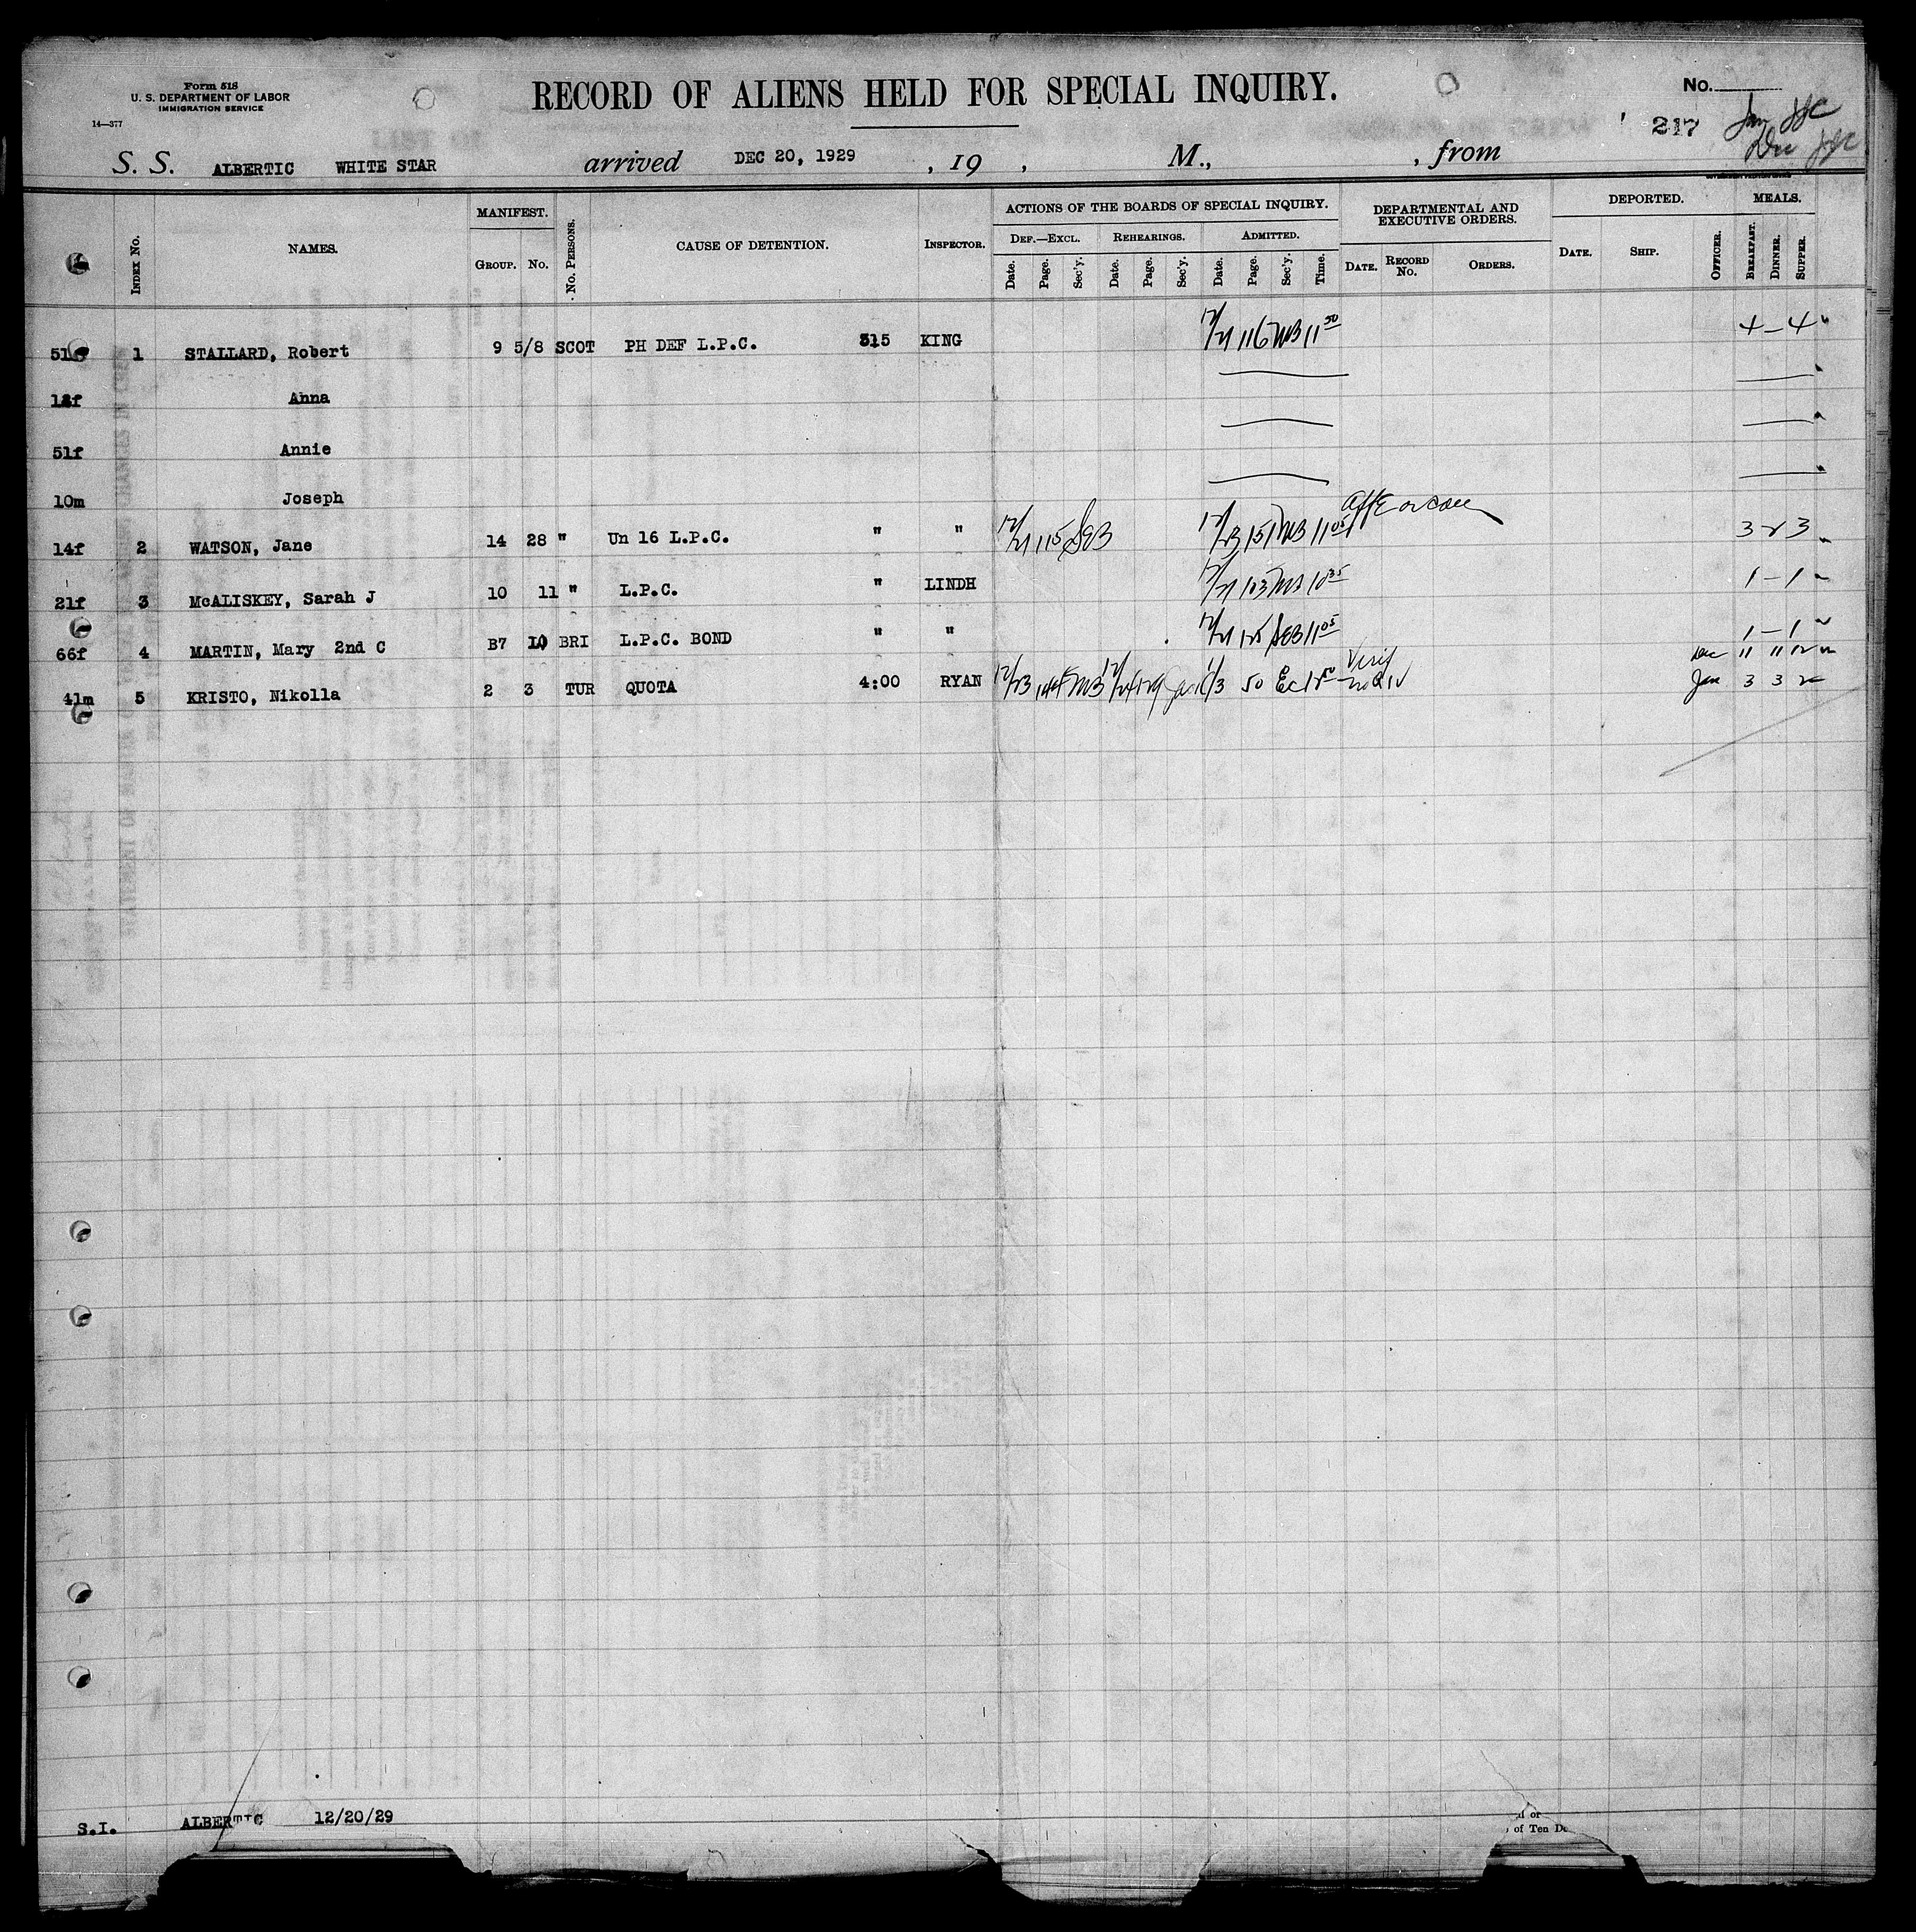 Form 518
U. S. DEPARTMENT OF LABOR
IMMIGRATION SERVICE
14—377
RECORD OF ALIENS HELD FOR SPECIAL INQUIRY.
No.
217
S. S. ALBERTIC WHITE STAR arrived DEC 20, 1929 , 19 , M., , from
INDEX No. NAMES. MANIFEST. GROUP. No. No. PERSONS. CAUSE OF DETENTION. INSPECTOR. ACTIONS OF THE BOARDS OF SPECIAL INQUIRY. DEF.—EXCL. Date. Page. Sec'y. REHEARINGS. Date. Page. Sec'y. ADMITTED. Date. Page. Sec'y. Time. DEPARTMENTAL AND EXECUTIVE ORDERS. DATE. RECORD No. ORDERS. DEPORTED. DATE. SHIP. OFFICER. MEALS. BREAKFAST. DINNER. SUPPER.
1 STALLARD, Robert 9 5/8 SCOT PH DEF L.P.C. 515 KING 12/21 116 MB 11 50 4 – 4 "
Anna
51f Annie
10m Joseph
14f 2 WATSON, Jane 14 28 " Un 16 L.P.C. " " 12/21 115 SEB 12/23 151 MB 11 05 3 2 3
21f 3 McALISKEY, Sarah J 10 11 " L.P.C. " LINDH 12/21 103 MB 10 35 1 – 1
66f 4 MARTIN, Mary 2nd C B7 10 BRI L.P.C. BOND " " 12/21 125 SEB 11 05 1 – 1
Dec 11 11 12
41m 5 KRISTO, Nikolla 2 3 TUR QUOTA 4:00 RYAN 12/23 MB 1/3 50 EC Jan 3 3 2
S.I. ALBERTIC 12/20/29
of Ten